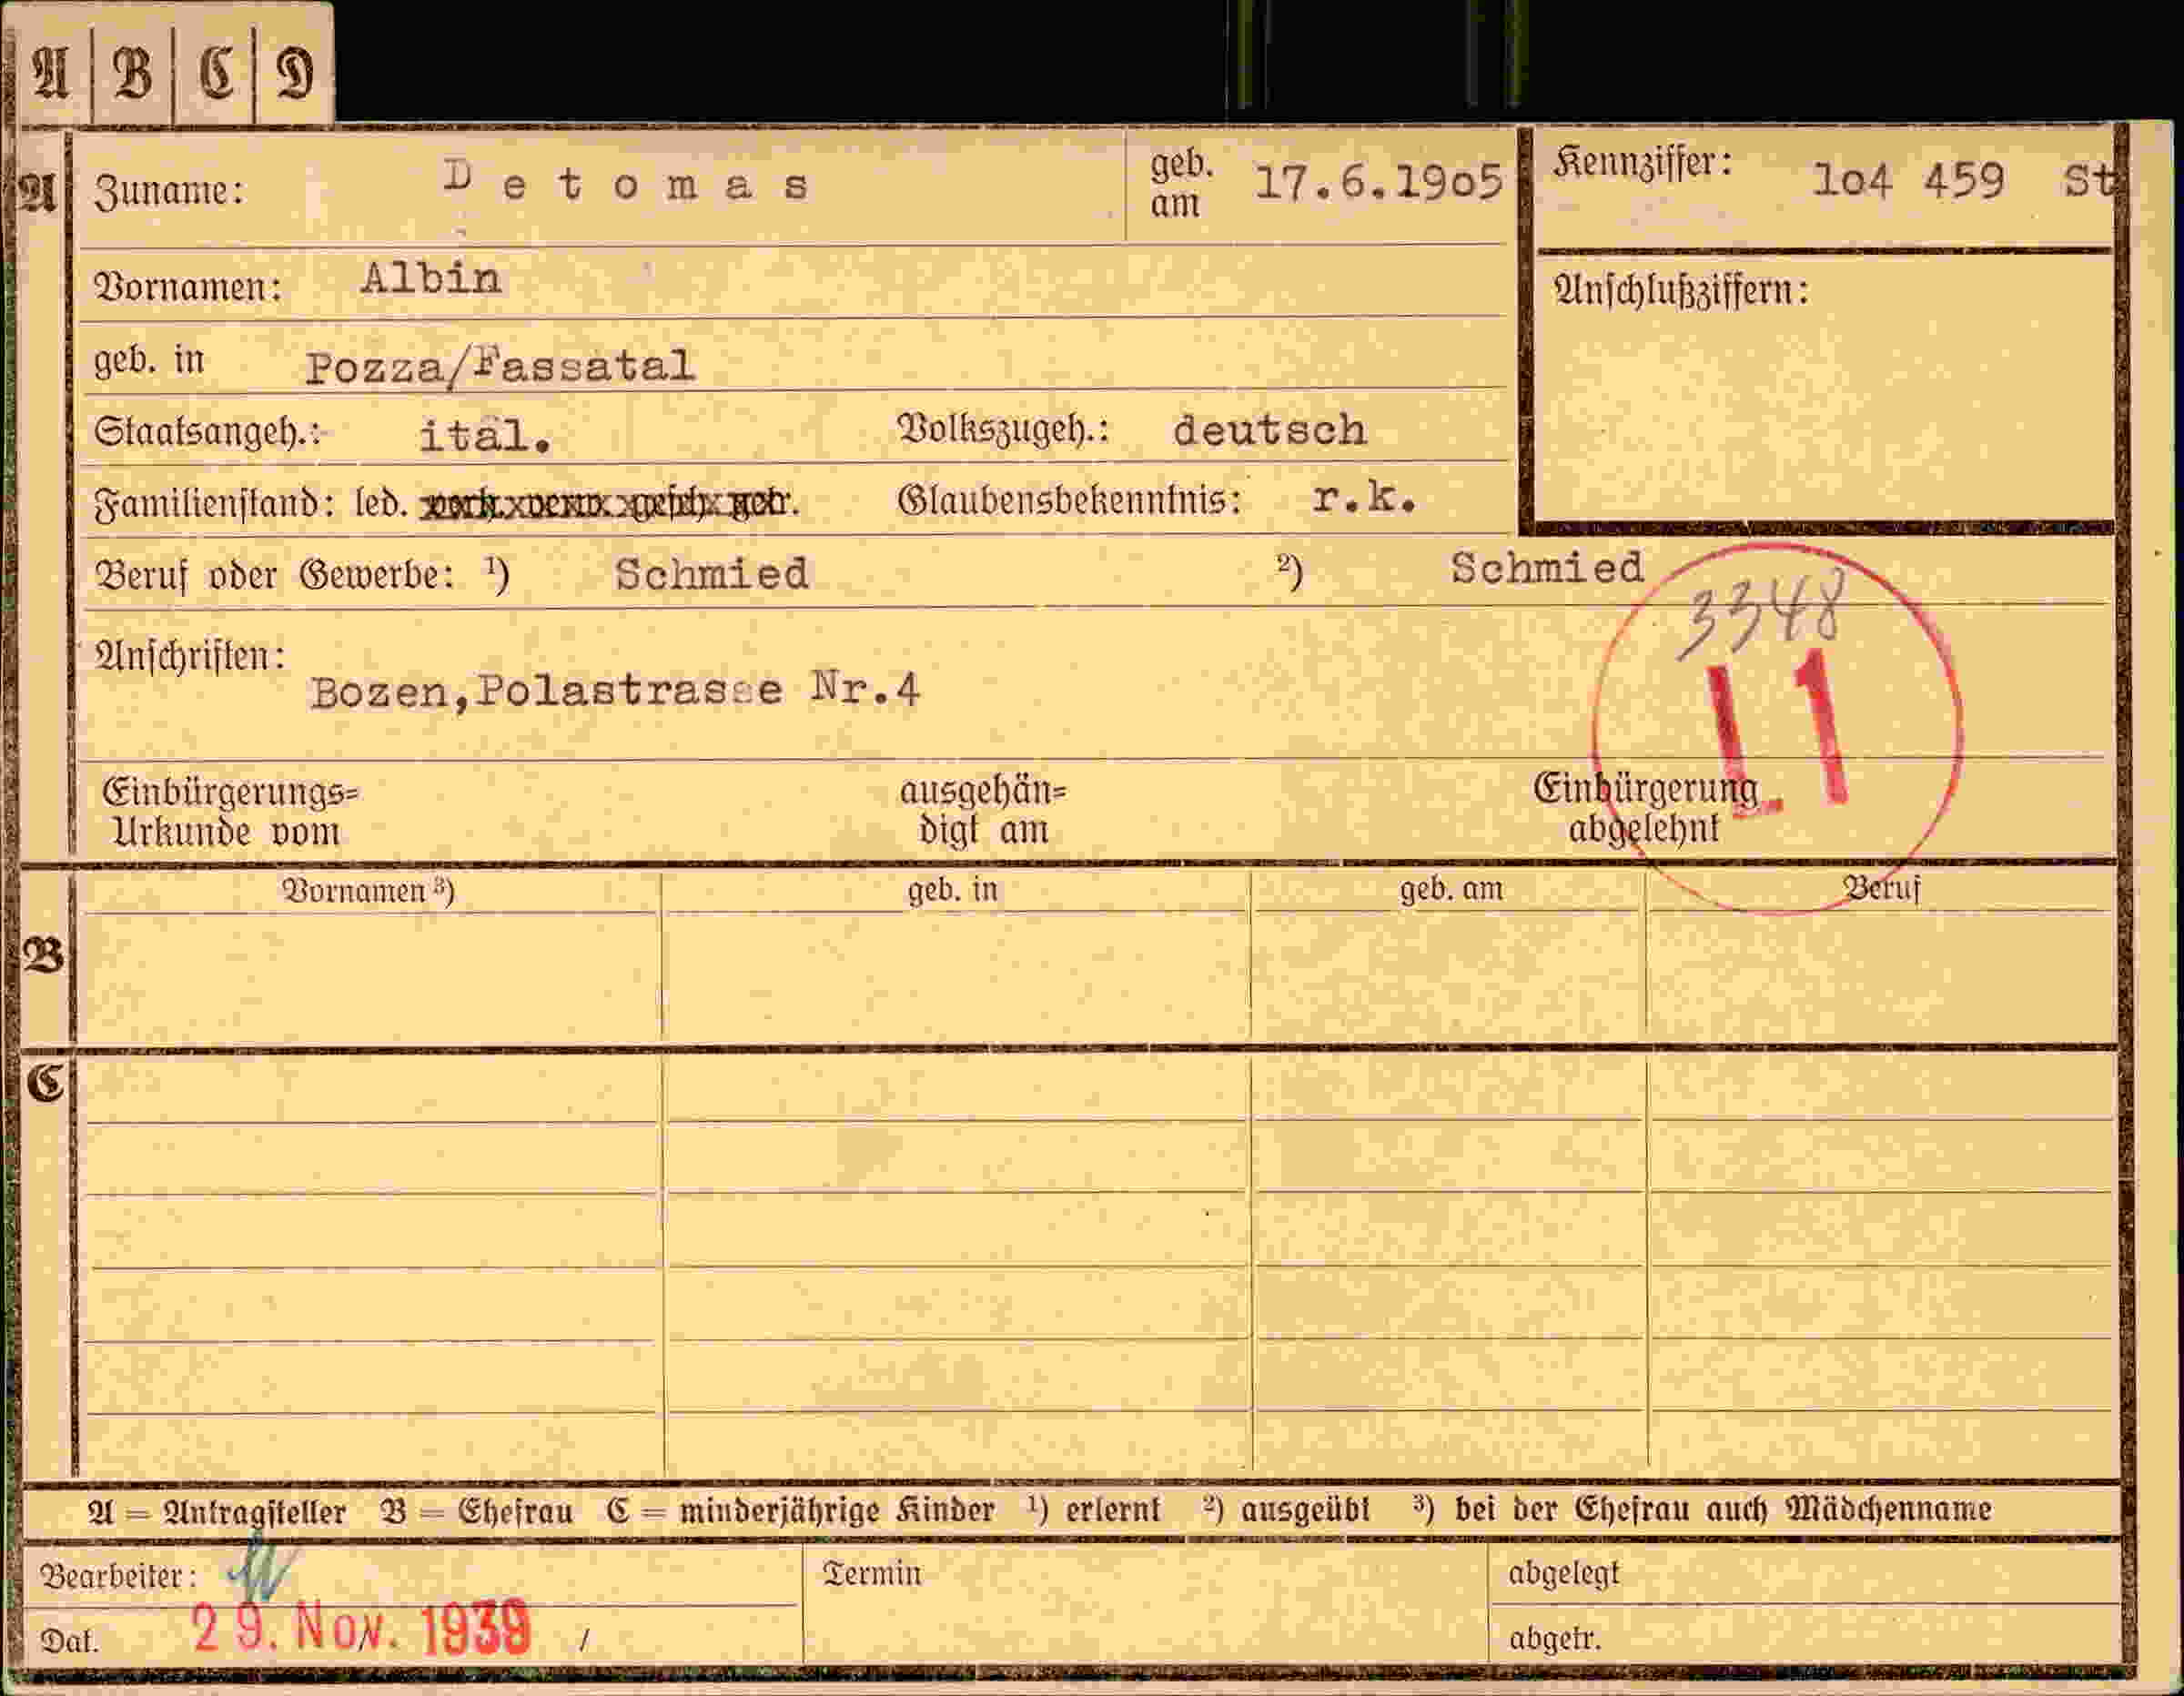 A B C D
A Zuname: Detomas geb. am 17.6.1905 Kennziffer: 1o4 459 St
Vornamen: Albin Anschlußziffern:
geb. in Pozza/Fassatal
Staatsangeh.: ital. Volkszugeh.: deutsch
Familienstand: led. verh. verw. gesch. getr. Glaubensbekenntnis: r.k.
Beruf oder Gewerbe: ¹) Schmied ²) Schmied
3348
Anschriften:
Bozen,Polastrasse Nr.4
L1
Einbürgerungs= ausgehän= Einbürgerung
Urkunde vom digt am abgelehnt
Vornamen ³) geb. in geb. am Beruf
B
C
A = Antragsteller B = Ehefrau C = minderjährige Kinder ¹) erlernt ²) ausgeübt ³) bei der Ehefrau auch Mädchenname
Bearbeiter: Termin abgelegt
Dat. 29. Nov. 1939 / abgetr.